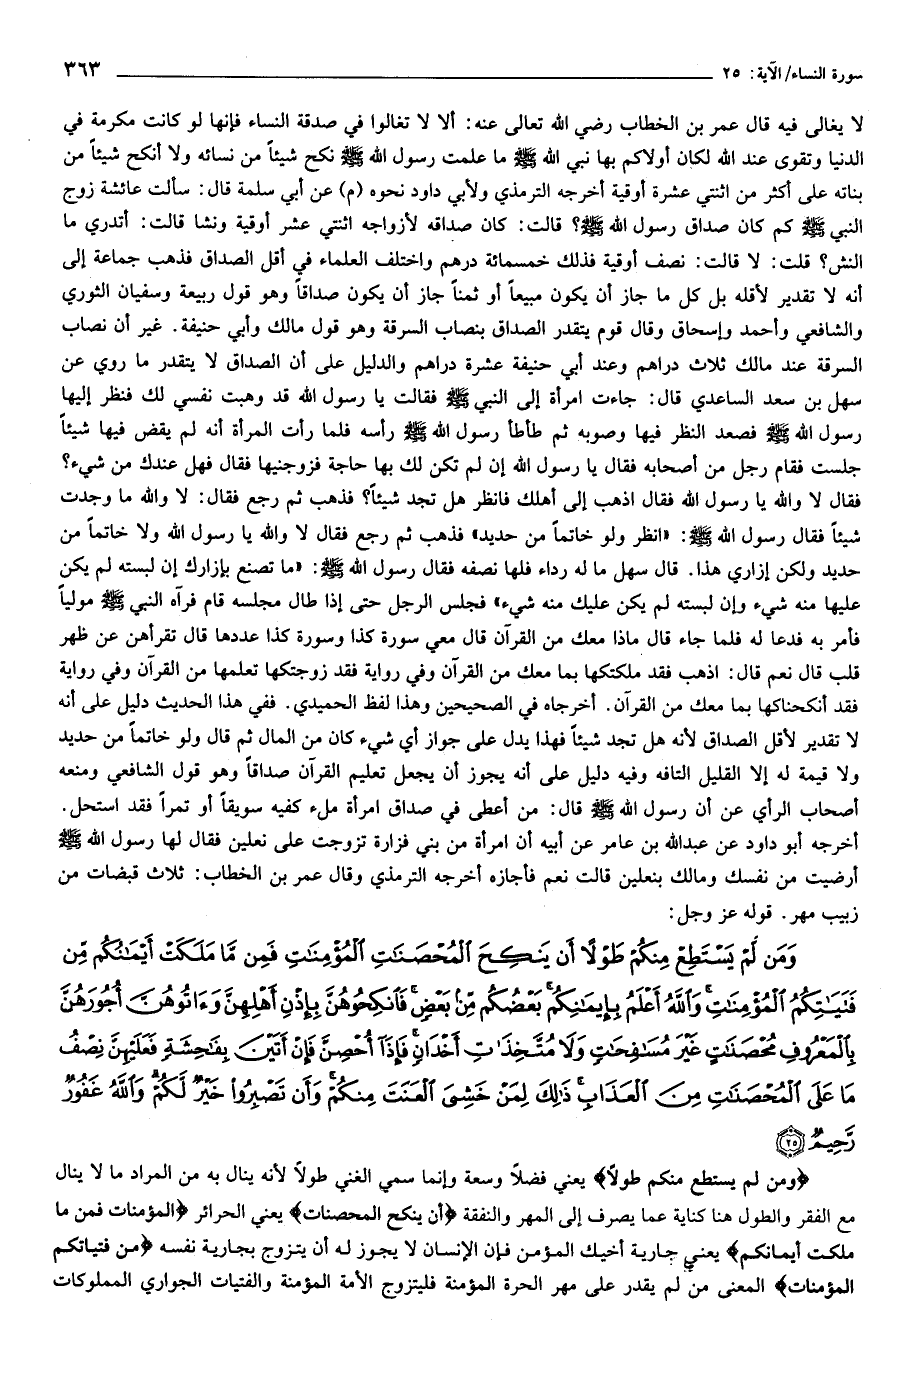 سورة النساء/ الآية: ٢٥ ٣٦٣
لا يغالى فيه قال عمر بن الخطاب رضي الله تعالى عنه: ألا لا تغالوا في صدقة النساء فإنها لو كانت مكرمة في
الدنيا وتقوى عند الله لكان أولاكم بها نبي الله ﷺ ما علمت رسول الله ﷺ نكح شيئاً من نسائه ولا أنكح شيئاً من
بناته على أكثر من اثنتي عشرة أوقية أخرجه الترمذي ولأبي داود نحوه (م) عن أبي سلمة قال: سألت عائشة زوج
النبي ﷺ كم كان صداق رسول الله ﷺ؟ قالت: كان صداقه لأزواجه اثنتي عشر أوقية ونشا قالت: أتدري ما
النش؟ قلت: لا قالت: نصف أوقية فذلك خمسمائة درهم واختلف العلماء في أقل الصداق فذهب جماعة إلى
أنه لا تقدير لأقله بل كل ما جاز أن يكون مبيعاً أو ثمناً جاز أن يكون صداقاً وهو قول ربيعة وسفيان الثوري
والشافعي وأحمد وإسحاق وقال قوم يتقدر الصداق بنصاب السرقة وهو قول مالك وأبي حنيفة. غير أن نصاب
السرقة عند مالك ثلاث دراهم وعند أبي حنيفة عشرة دراهم والدليل على أن الصداق لا يتقدر ما روي عن
سهل بن سعد الساعدي قال: جاءت امرأة إلى النبي ﷺ فقالت يا رسول الله قد وهبت نفسي لك فنظر إليها
رسول الله ﷺ فصعد النظر فيها وصوبه ثم طأطأ رسول الله ﷺ رأسه فلما رأت المرأة أنه لم يقض فيها شيئاً
جلست فقام رجل من أصحابه فقال يا رسول الله إن لم تكن لك بها حاجة فزوجنيها فقال فهل عندك من شيء؟
فقال لا والله يا رسول الله فقال اذهب إلى أهلك فانظر هل تجد شيئاً؟ فذهب ثم رجع فقال: لا والله ما وجدت
شيئاً فقال رسول الله ﷺ: «انظر ولو خاتماً من حديد» فذهب ثم رجع فقال لا والله يا رسول الله ولا خاتماً من
حديد ولكن إزاري هذا. قال سهل ما له رداء فلها نصفه فقال رسول الله ﷺ: «ما تصنع بإزارك إن لبسته لم يكن
عليها منه شيء وإن لبسته لم يكن عليك منه شيء» فجلس الرجل حتى إذا طال مجلسه قام فرآه النبي ﷺ مولياً
فأمر به فدعا له فلما جاء قال ماذا معك من القرآن قال معي سورة كذا وسورة كذا عددها قال تقرأهن عن ظهر
قلب قال نعم قال: اذهب فقد ملكتكها بما معك من القرآن وفي رواية فقد زوجتكها تعلمها من القرآن وفي رواية
فقد أنكحناكها بما معك من القرآن. أخرجاه في الصحيحين وهذا لفظ الحميدي. ففي هذا الحديث دليل على أنه
لا تقدير لأقل الصداق لأنه هل تجد شيئاً فهذا يدل على جواز أي شيء كان من المال ثم قال ولو خاتماً من حديد
ولا قيمة له إلا القليل التافه وفيه دليل على أنه يجوز أن يجعل تعليم القرآن صداقاً وهو قول الشافعي ومنعه
أصحاب الرأي عن أن رسول الله ﷺ قال: من أعطى في صداق امرأة ملء كفيه سويقاً أو تمراً فقد استحل.
أخرجه أبو داود عن عبدالله بن عامر عن أبيه أن امرأة من بني فزارة تزوجت على نعلين فقال لها رسول الله ﷺ
أرضيت من نفسك ومالك بنعلين قالت نعم فأجازه أخرجه الترمذي وقال عمر بن الخطاب: ثلاث قبضات من
زبيب مهر. قوله عز وجل:
وَمَن لَّمْ يَسْتَطِعْ مِنكُمْ طَوْلًا أَن يَنكِحَ ٱلْمُحْصَنَٰتِ ٱلْمُؤْمِنَٰتِ فَمِن مَّا مَلَكَتْ أَيْمَٰنُكُم مِّن
فَتَيَٰتِكُمُ ٱلْمُؤْمِنَٰتِ ۚ وَٱللَّهُ أَعْلَمُ بِإِيمَٰنِكُم ۚ بَعْضُكُم مِّنۢ بَعْضٍ ۚ فَٱنكِحُوهُنَّ بِإِذْنِ أَهْلِهِنَّ وَءَاتُوهُنَّ أُجُورَهُنَّ
بِٱلْمَعْرُوفِ مُحْصَنَٰتٍ غَيْرَ مُسَٰفِحَٰتٍ وَلَا مُتَّخِذَٰتِ أَخْدَانٍ ۚ فَإِذَآ أُحْصِنَّ فَإِنْ أَتَيْنَ بِفَٰحِشَةٍ فَعَلَيْهِنَّ نِصْفُ
مَا عَلَى ٱلْمُحْصَنَٰتِ مِنَ ٱلْعَذَابِ ۚ ذَٰلِكَ لِمَنْ خَشِىَ ٱلْعَنَتَ مِنكُمْ ۚ وَأَن تَصْبِرُوا۟ خَيْرٌ لَّكُمْ ۗ وَٱللَّهُ غَفُورٌ
رَّحِيمٌ ٢٥
﴿ومن لم يستطع منكم طولاً﴾ يعني فضلاً وسعة وإنما سمي الغني طولاً لأنه ينال به من المراد ما لا ينال
مع الفقر والطول هنا كناية عما يصرف إلى المهر والنفقة ﴿أن ينكح المحصنات﴾ يعني الحرائر ﴿المؤمنات فمن ما
ملكت أيمانكم﴾ يعني جارية أخيك المؤمن فإن الإنسان لا يجوز له أن يتزوج بجارية نفسه ﴿من فتياتكم
المؤمنات﴾ المعنى من لم يقدر على مهر الحرة المؤمنة فليتزوج الأمة المؤمنة والفتيات الجواري المملوكات